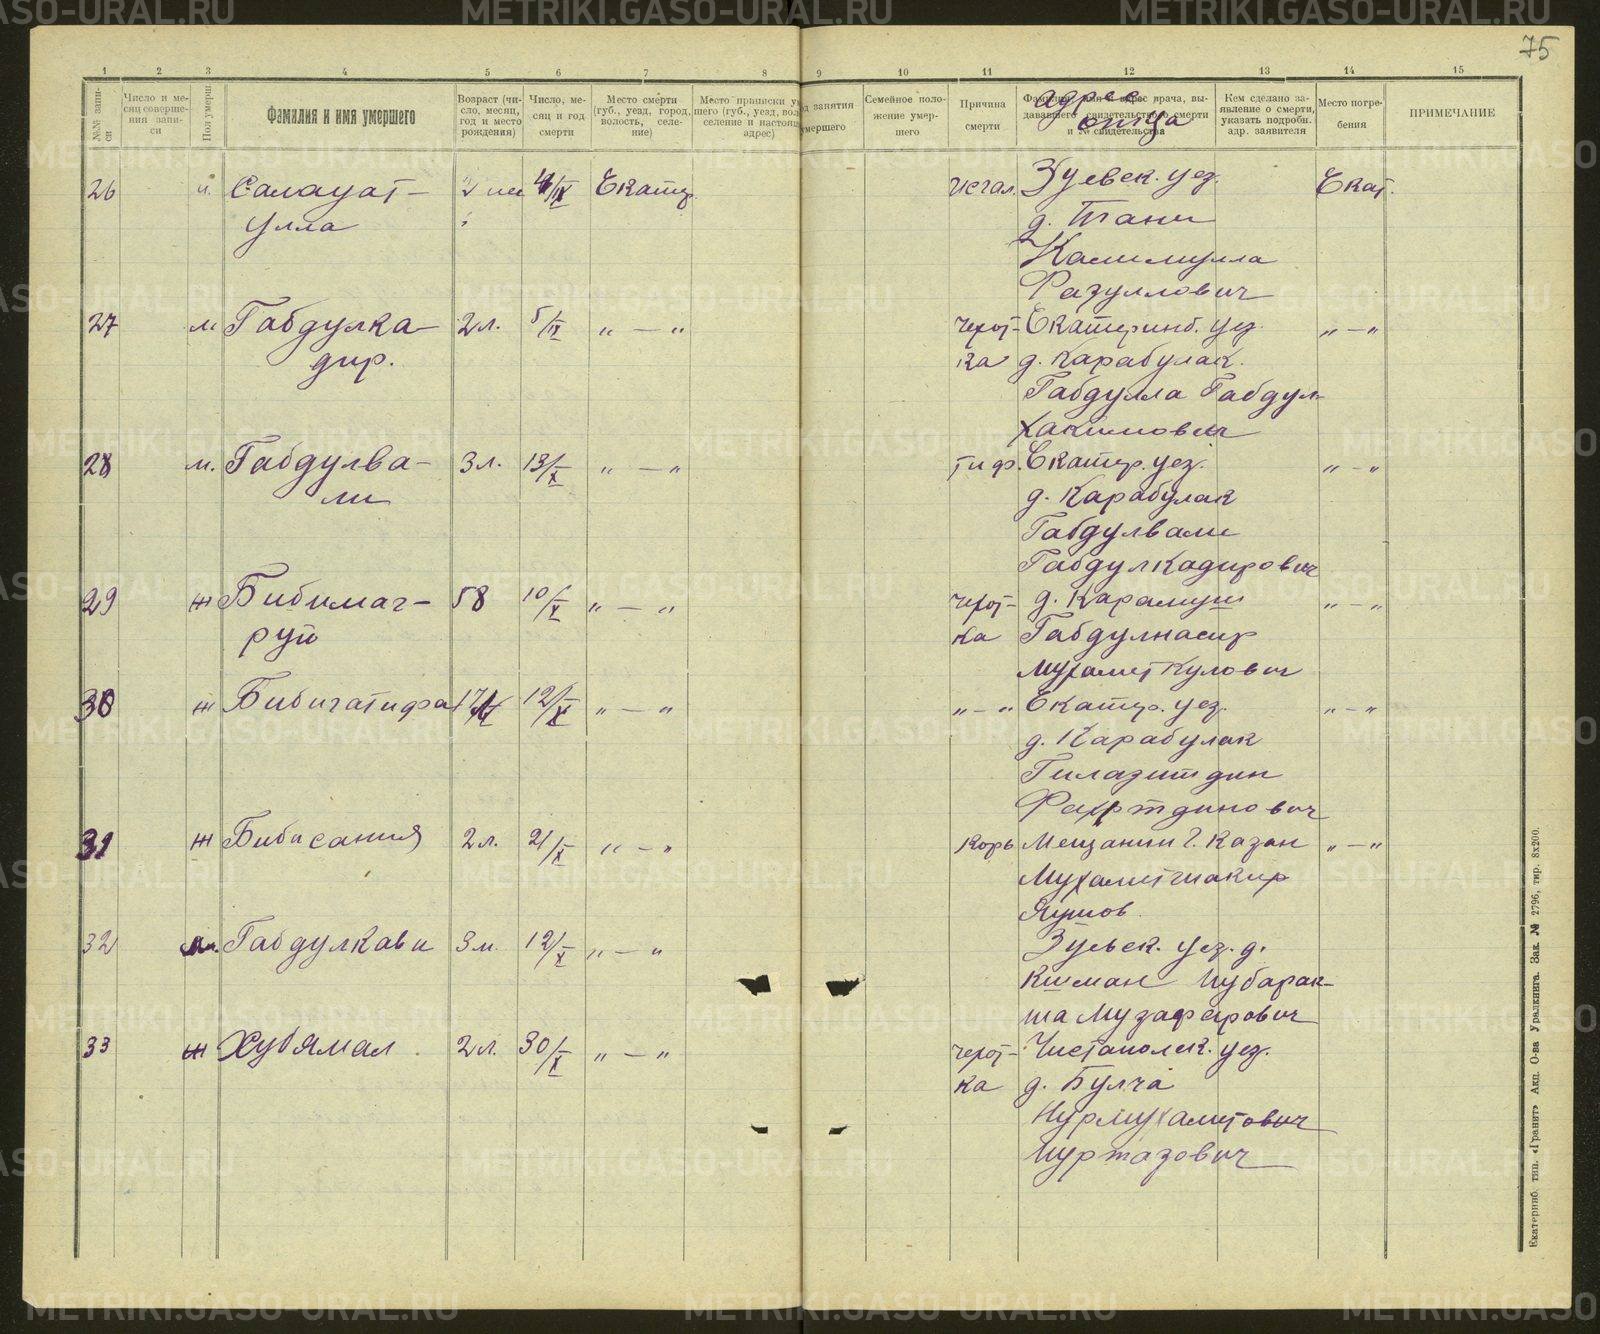 75
1 2 3 4 5 6 7 8 9 10 11 12 13 14 15
№№ запи-
си
Число и ме-
сяц соверше-
ния запи-
си
Пол умерш.
Фамилия и имя умершего
Возраст (чи-
сло, месяц,
год и место
рождения)
Число, ме-
сяц и год
смерти
Место смерти
(губ., уезд, город,
волость, селе-
ние)
Место приписки у
шего (губ., уезд, вол
селение и настоящ
адрес)
д занятия
умершего
Семейное поло-
жение умер-
шего
Причина
смерти
адрес
отца
Кем сделано за-
явление о смерти,
указать подробн.
адр. заявителя
Место погре-
бения
ПРИМЕЧАНИЕ
26 м. Салауат- 4/IX Екатер. Зуевск. уез. Екат.
улла д. Тани
Калимулла
Разуллович
27 м Габдулка- 2 л. 5/IX „ — „ чехот- Екатеринб. уез. „ — „
дир. ка д. Карабулак.
Габдулла Габдул-
хакимович
28 м. Габдулва- 3 л. 13/X „ — „ тиф. Екатер. уез. „ — „
ли д. Карабулак
Габдулвали
Габдулкадирович
29 ж Бибимаг- 58 10/X „ — „ чехот- д. Карамуш „ — „
руй ка Габдулнасир
Мухаметкулович
30 ж Бибигатифа 17 12/X „ — „ „ — „ Екатер. уез. „ — „
д. Карабулак
Гилазитдин
Фахртдинович
31 ж Бибисания 2 л. 21/X „ — „ корь Мещанин г. Казан „ — „
Мухаметшакир
Яушов.
32 м. Габдулкави 3 м. 12/X „ — „ Зуевск. уез. д.
Кшман Мубарак-
ша Музафарович
33 ж Хубямал 2 л. 30/X „ — „ чехот- Чистаполск. уез.
ка д. Булча
Нурмухаметович
Муртазович
Екатеринб. тип. «Гранит» Акц. О-ва Уралкнига. Зак. № 2796, тир. 8х200.
METRIKI.GASO-URAL.RU